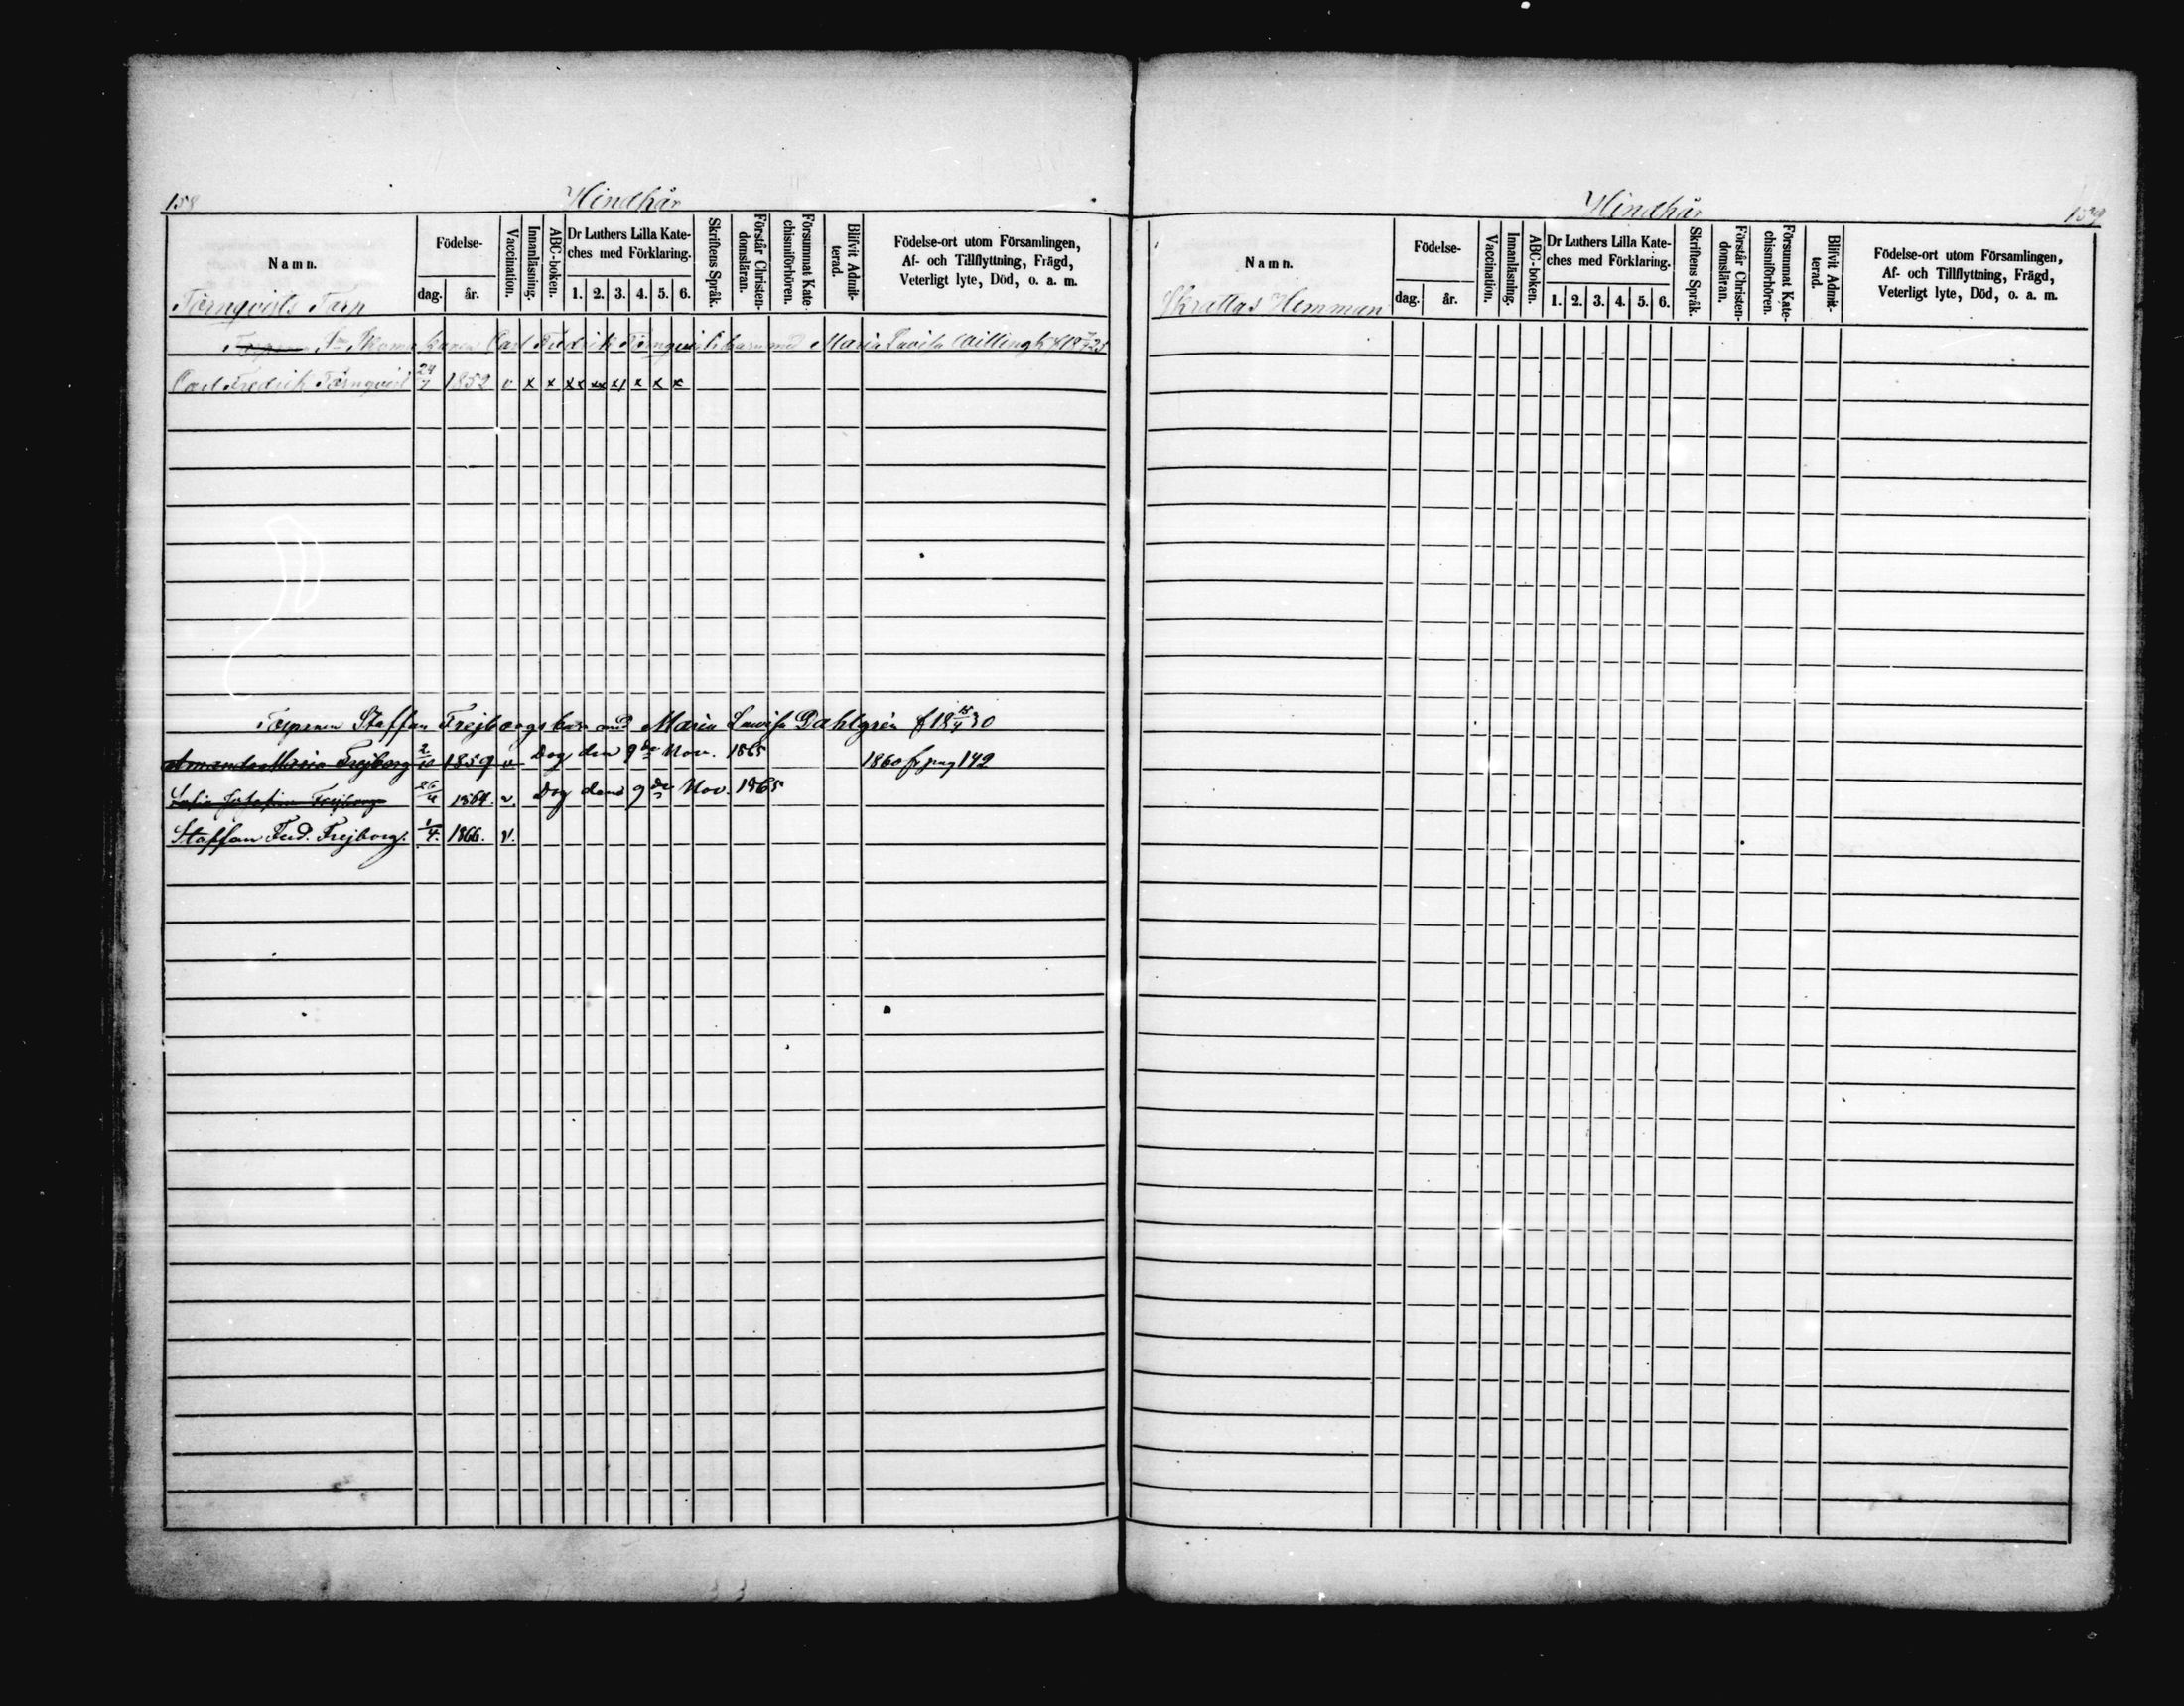 158
Hindhår
Namn.
Födelse-
dag.
år.
Vaccination.
Innanläsning.
ABC-boken.
Dr Luthers Lilla Kate-
ches med Förklaring.
1. 2. 3. 4. 5. 6.
Skriftens Språk.
Förstår Christen-
domsläran.
Försummat Kate-
chismiförhören.
Blifvit Admit-
terad.
Födelse-ort utom Församlingen,
Af- och Tillflyttning, Frägd,
Veterligt lyte, Död, o. a. m.
Törnqvists Torp
Carl Fredrik Törnqvists barn med Maria Lovisa
Carl Fredrik Törnqvist 24/7 1852 v x x xx xx x/ x x x
Torparen Staffan Frejborgs barn med Maria Lovisa Dahlgren f 18 15/4 30
Amanda Maria Frejborg 2/10 1859 v Dog den 9de Nov. 1865 1860 fr pag 142
Frejborg 26/4 1864. v. Dog den 9de Nov. 1865
Staffan Ferd. Frejborg. 1/4. 1866. v.
Hindhår
159
Namn.
Födelse-
dag.
år.
Vaccination.
Innanläsning.
ABC-boken.
Dr Luthers Lilla Kate-
ches med Förklaring.
1. 2. 3. 4. 5. 6.
Skriftens Språk.
Förstår Christen-
domsläran.
Försummat Kate-
chismiförhören.
Blifvit Admit-
terad.
Födelse-ort utom Församlingen,
Af- och Tillflyttning, Frägd,
Veterligt lyte, Död, o. a. m.
Skrattas Hemman